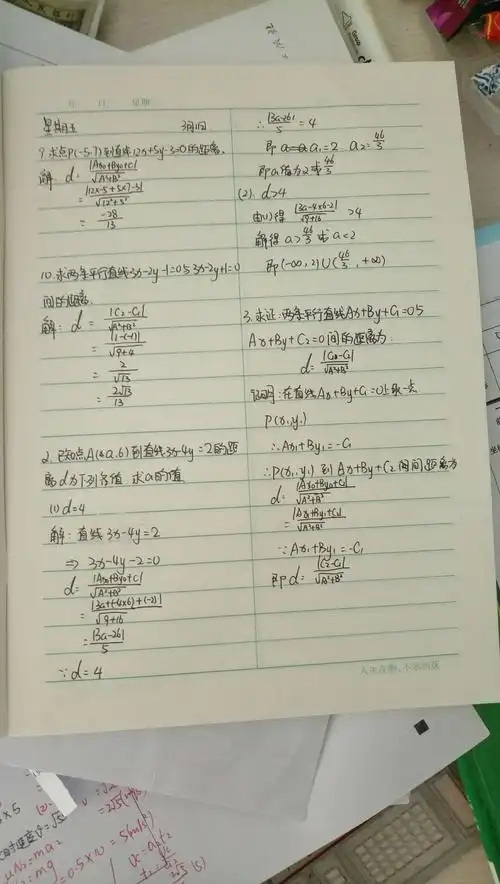 月 日 星期
星期五 3月11日
9.求点P(-5,7)到直线12x+5y-3=0的距离.
解: d=|Ax₀+By₀+C|/√A²+B²
=|12×-5+5×7-3|/√12²+5²
=-28/13
10.求两条平行直线3x-2y-1=0与3x-2y+1=0
间的距离.
解: d=|C₂-C₁|/√A²+B²
=|1-(-1)|/√9+4
=2/√13
=2√13/13
2.已知点A(a,6)到直线3x-4y=2的距
离d为下列各值,求a的值
(1)d=4
解:直线3x-4y=2
⇒3x-4y-2=0
d=|Ax₀+By₀+C|/√A²+B²
=|3a+(-4×6)+(-2)|/√9+16
=|3a-26|/5
∵d=4
∴|3a-26|/5=4
即 a₁=2 a₂=46/3
即a值为2或46/3
(2).d>4
由(1)得 |3a-4×6-2|/√9+16>4
解得a>46/3或a<2
即(-∞,2)∪(46/3,+∞)
3.求证:两条平行直线Ax+By+C₁=0与
Ax+By+C₂=0间的距离为
d=|C₂-C₁|/√A²+B²
证明:在直线Ax+By+C₁=0上取一点
P(x₁,y₁)
∴Ax₁+By₁=-C₁
∴P(x₁,y₁)到Ax+By+C₂间距离为
d=|Ax₀+By₀+C|/√A²+B²
=|Ax₁+By₁+C₂|/√A²+B²
∵Ax₁+By₁=-C₁
即d=|C₂-C₁|/√A²+B²
μN₂=ma₂
=0.5×10=5(m/s²)